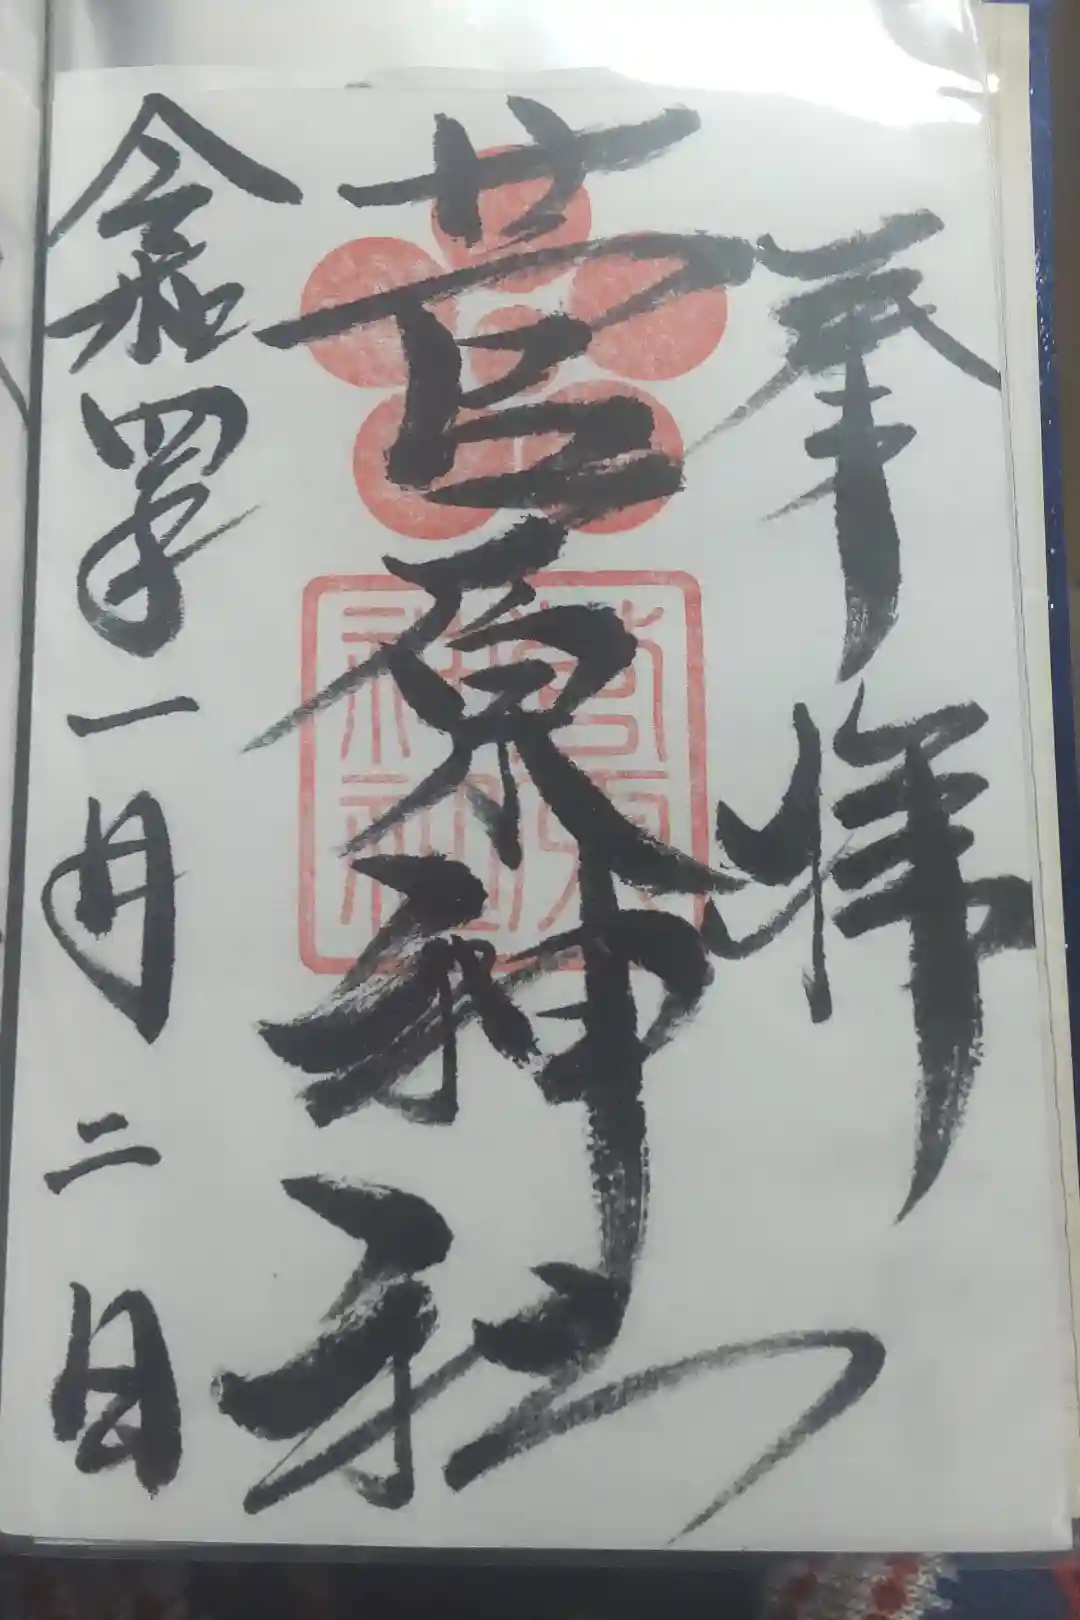 奉拝
菅原神社
菅原神社
令和四年一月二日